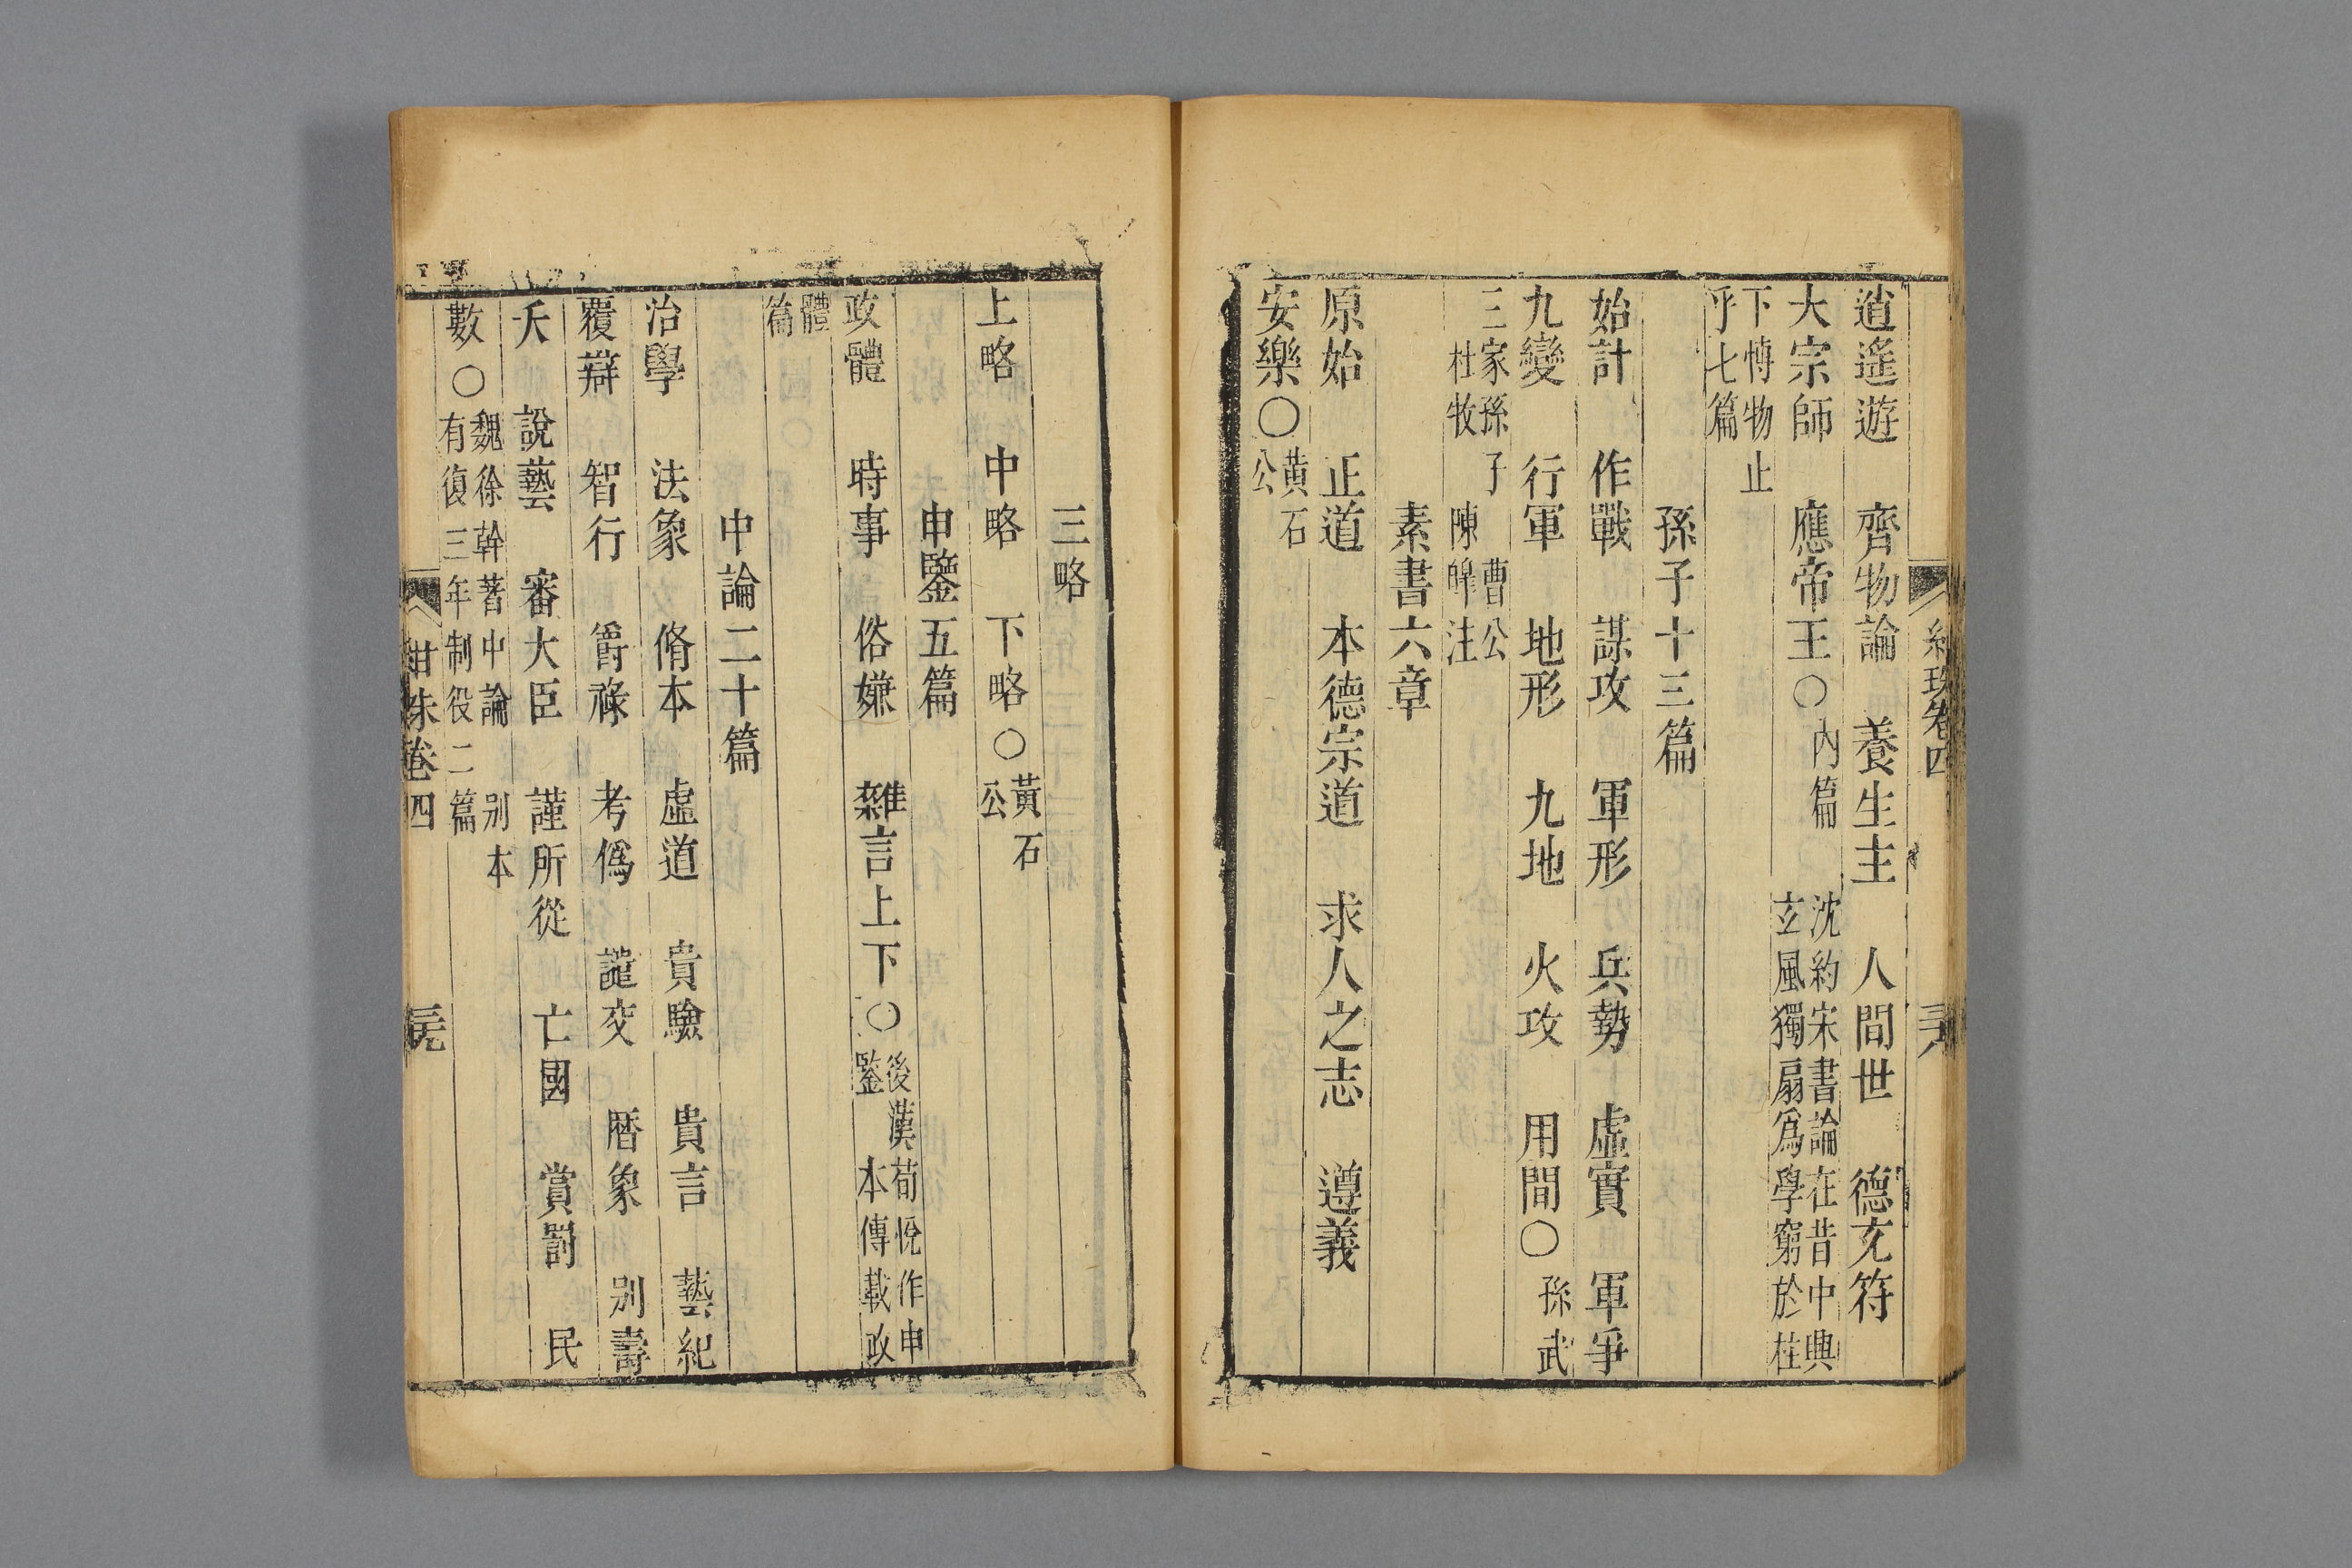 紺珠卷四
逍遙遊 齊物論 養生主 人間世 德充符
大宗師 應帝王○內篇 沈約宋書論在昔中興玄風獨扇爲學窮於柱
下愽物止乎七篇
孫子十三篇
始計 作戰 謀攻 軍形 兵勢 虛實 軍爭
九變 行軍 地形 九地 火攻 用間○孫武
三家孫子 曹公 杜牧 陳皥注
素書六章
原始 正道 本德宗道 求人之志 遵義
安樂○黃石公
三略
上略 中略 下略○黃石公
申鑒五篇
政體 時事 俗嫌 雜言上下○後漢荀悅作申鑒 本傳載政
體篇
中論二十篇
治學 法象 脩本 虛道 貴驗 貴言 藝紀
覆辯 智行 爵祿 考僞 譴交 曆象 别壽
夭 說藝 審大臣 謹所從 亡國 賞罰 民
數○魏徐幹著中論 别本有復三年制役二篇
紺珠卷四